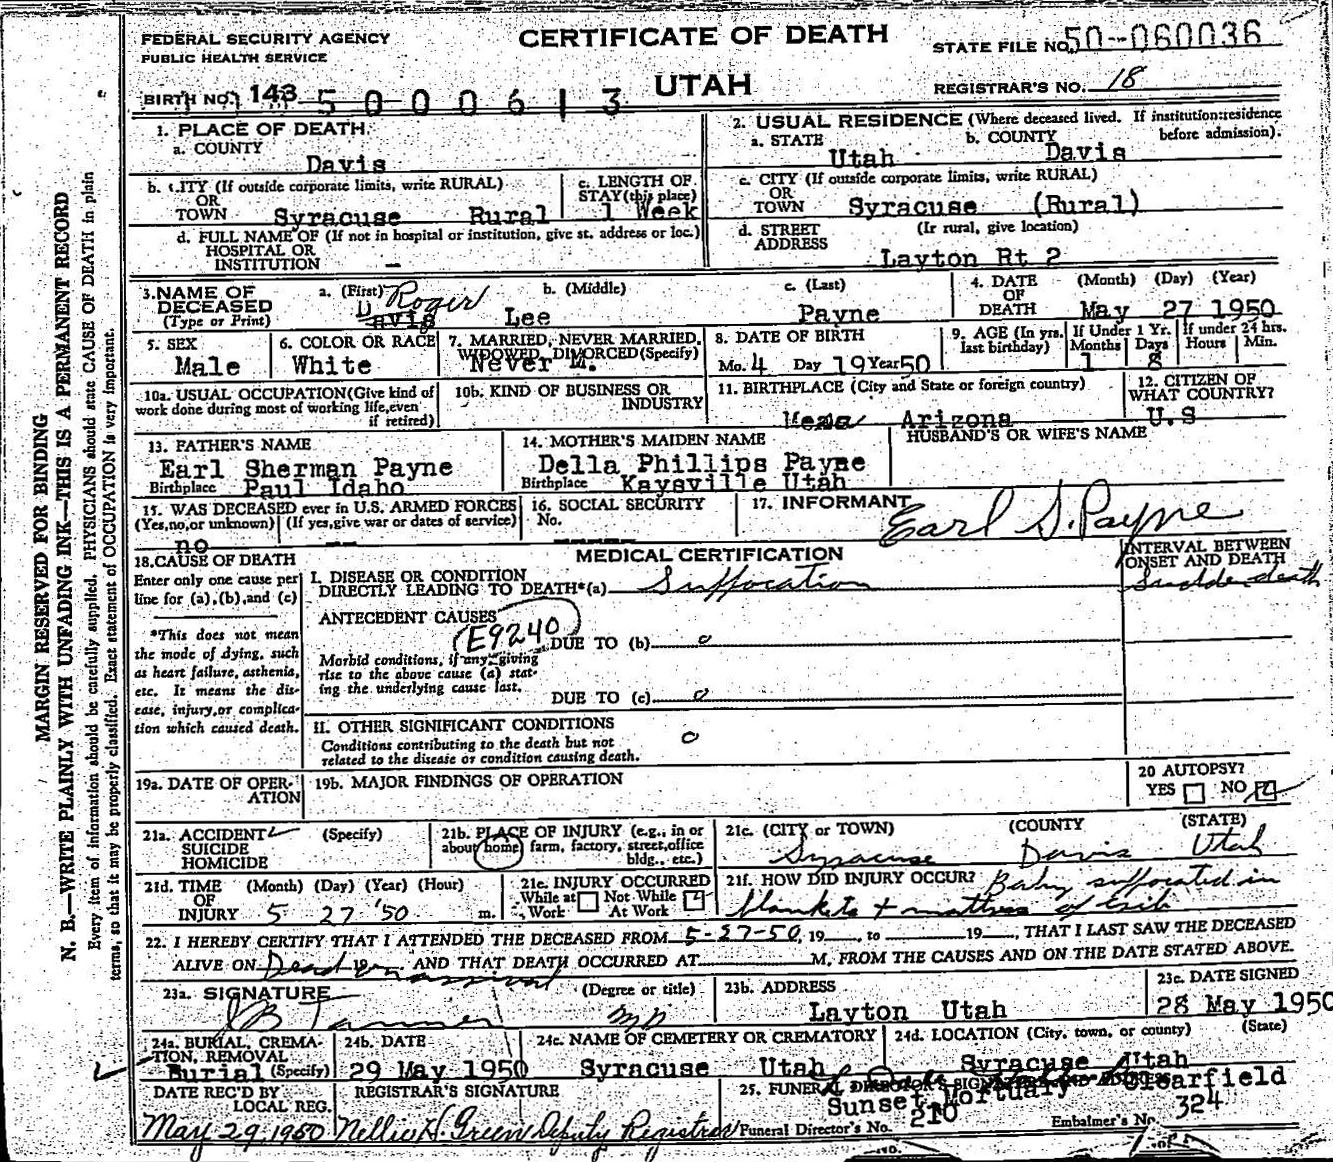 FEDERAL SECURITY AGENCY
PUBLIC HEALTH SERVICE
CERTIFICATE OF DEATH
UTAH
STATE FILE NO. 50-060036
REGISTRAR'S NO. 18
BIRTH NO. 143 5000613
1. PLACE OF DEATH.
a. COUNTY
Davis
2. USUAL RESIDENCE (Where deceased lived. If institution:residence before admission).
a. STATE
Utah
b. COUNTY
Davis
b. CITY (If outside corporate limits, write RURAL)
OR
TOWN Syracuse Rural
c. LENGTH OF
STAY (this place)
1 Week
c. CITY (If outside corporate limits, write RURAL)
OR
TOWN Syracuse (Rural)
d. FULL NAME OF (If not in hospital or institution, give st. address or loc.)
HOSPITAL OR
INSTITUTION —
d. STREET (Ir rural, give location)
ADDRESS
Layton Rt 2
3. NAME OF
DECEASED
(Type or Print)
a. (First) Roger
Davis
b. (Middle)
Lee
c. (Last)
Payne
4. DATE
OF
DEATH
(Month) (Day) (Year)
May 27 1950
5. SEX
Male
6. COLOR OR RACE
White
7. MARRIED, NEVER MARRIED,
WIDOWED, DIVORCED (Specify)
Never M.
8. DATE OF BIRTH
Mo. 4 Day 19 Year 50
9. AGE (In yrs.
last birthday)
If Under 1 Yr.
Months Days
1 8
If under 24 hrs.
Hours Min.
10a. USUAL OCCUPATION (Give kind of
work done during most of working life, even
if retired)
10b. KIND OF BUSINESS OR
INDUSTRY
11. BIRTHPLACE (City and State or foreign country)
Mesa Arizona
12. CITIZEN OF
WHAT COUNTRY?
U.S
13. FATHER'S NAME
Earl Sherman Payne
Birthplace Paul Idaho
14. MOTHER'S MAIDEN NAME
Della Phillips Payne
Birthplace Kaysville Utah
HUSBAND'S OR WIFE'S NAME
15. WAS DECEASED ever in U.S. ARMED FORCES
(Yes, no, or unknown) (If yes, give war or dates of service)
no --
16. SOCIAL SECURITY
No.
17. INFORMANT
Earl S. Payne
18. CAUSE OF DEATH
Enter only one cause per
line for (a), (b), and (c)
*This does not mean
the mode of dying, such
as heart failure, asthenia,
etc. It means the dis-
ease, injury, or complica-
tion which caused death.
MEDICAL CERTIFICATION
INTERVAL BETWEEN
ONSET AND DEATH
I. DISEASE OR CONDITION
DIRECTLY LEADING TO DEATH*(a) Suffocation
Sudden death
ANTECEDENT CAUSES
E9240
DUE TO (b) o
Morbid conditions, if any, giving
rise to the above cause (a) stat-
ing the underlying cause last.
DUE TO (c) o
II. OTHER SIGNIFICANT CONDITIONS
Conditions contributing to the death but not
related to the disease or condition causing death.
o
19a. DATE OF OPER-
ATION
19b. MAJOR FINDINGS OF OPERATION
20 AUTOPSY?
YES NO
21a. ACCIDENT (Specify)
SUICIDE
HOMICIDE
21b. PLACE OF INJURY (e.g., in or
about home, farm, factory, street, office
bldg., etc.)
21c. (CITY or TOWN) (COUNTY (STATE)
Syracuse Davis Utah
21d. TIME (Month) (Day) (Year) (Hour)
OF
INJURY 5 27 '50 m.
21e. INJURY OCCURRED
While at Not While
Work At Work
21f. HOW DID INJURY OCCUR? Baby suffocated in
blankets + mattress of crib
22. I HEREBY CERTIFY THAT I ATTENDED THE DECEASED FROM 5-27-50, 19__, to ____ 19__, THAT I LAST SAW THE DECEASED
ALIVE ON Dead on arrival AND THAT DEATH OCCURRED AT ____ M, FROM THE CAUSES AND ON THE DATE STATED ABOVE.
23a. SIGNATURE (Degree or title)
JB Tanner MD
23b. ADDRESS
Layton Utah
23c. DATE SIGNED
28 May 1950
24a. BURIAL, CREMA-
TION, REMOVAL
Burial (Specify)
24b. DATE
29 May 1950
24c. NAME OF CEMETERY OR CREMATORY
Syracuse Utah
24d. LOCATION (City, town, or county) (State)
Syracuse Utah
DATE REC'D BY
LOCAL REG.
May 29, 1950
REGISTRAR'S SIGNATURE
Nellie H. Green Deputy Registrar
25. FUNERAL DIRECTOR'S SIGNATURE AND ADDRESS
Sunset Mortuary Clearfield
Funeral Director's No. 210
Embalmer's No. 324
MARGIN RESERVED FOR BINDING
N. B.—WRITE PLAINLY WITH UNFADING INK—THIS IS A PERMANENT RECORD
Every item of information should be carefully supplied. PHYSICIANS should state CAUSE OF DEATH in plain
terms, so that it may be properly classified. Exact statement of OCCUPATION is very important.